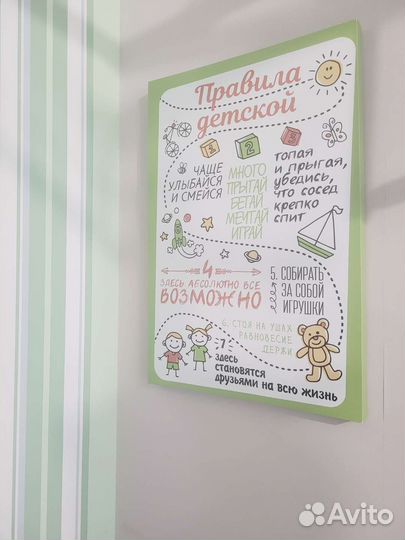 Правила
детской
1
2
3
ЧАЩЕ
УЛЫБАЙСЯ
И СМЕЙСЯ
МНОГО
ПРЫГАЙ
БЕГАЙ
МЕЧТАЙ
ИГРАЙ
ТОПАЯ
И ПРЫГАЯ,
УБЕДИСЬ,
ЧТО СОСЕД
КРЕПКО
СПИТ
4
ЗДЕСЬ АБСОЛЮТНО ВСЕ
ВОЗМОЖНО
5. СОБИРАТЬ
ЗА СОБОЙ
ИГРУШКИ
6. СТОЯ НА УШАХ
РАВНОВЕСИЕ
ДЕРЖИ
7
ЗДЕСЬ
СТАНОВЯТСЯ
ДРУЗЬЯМИ НА ВСЮ ЖИЗНЬ
Avito